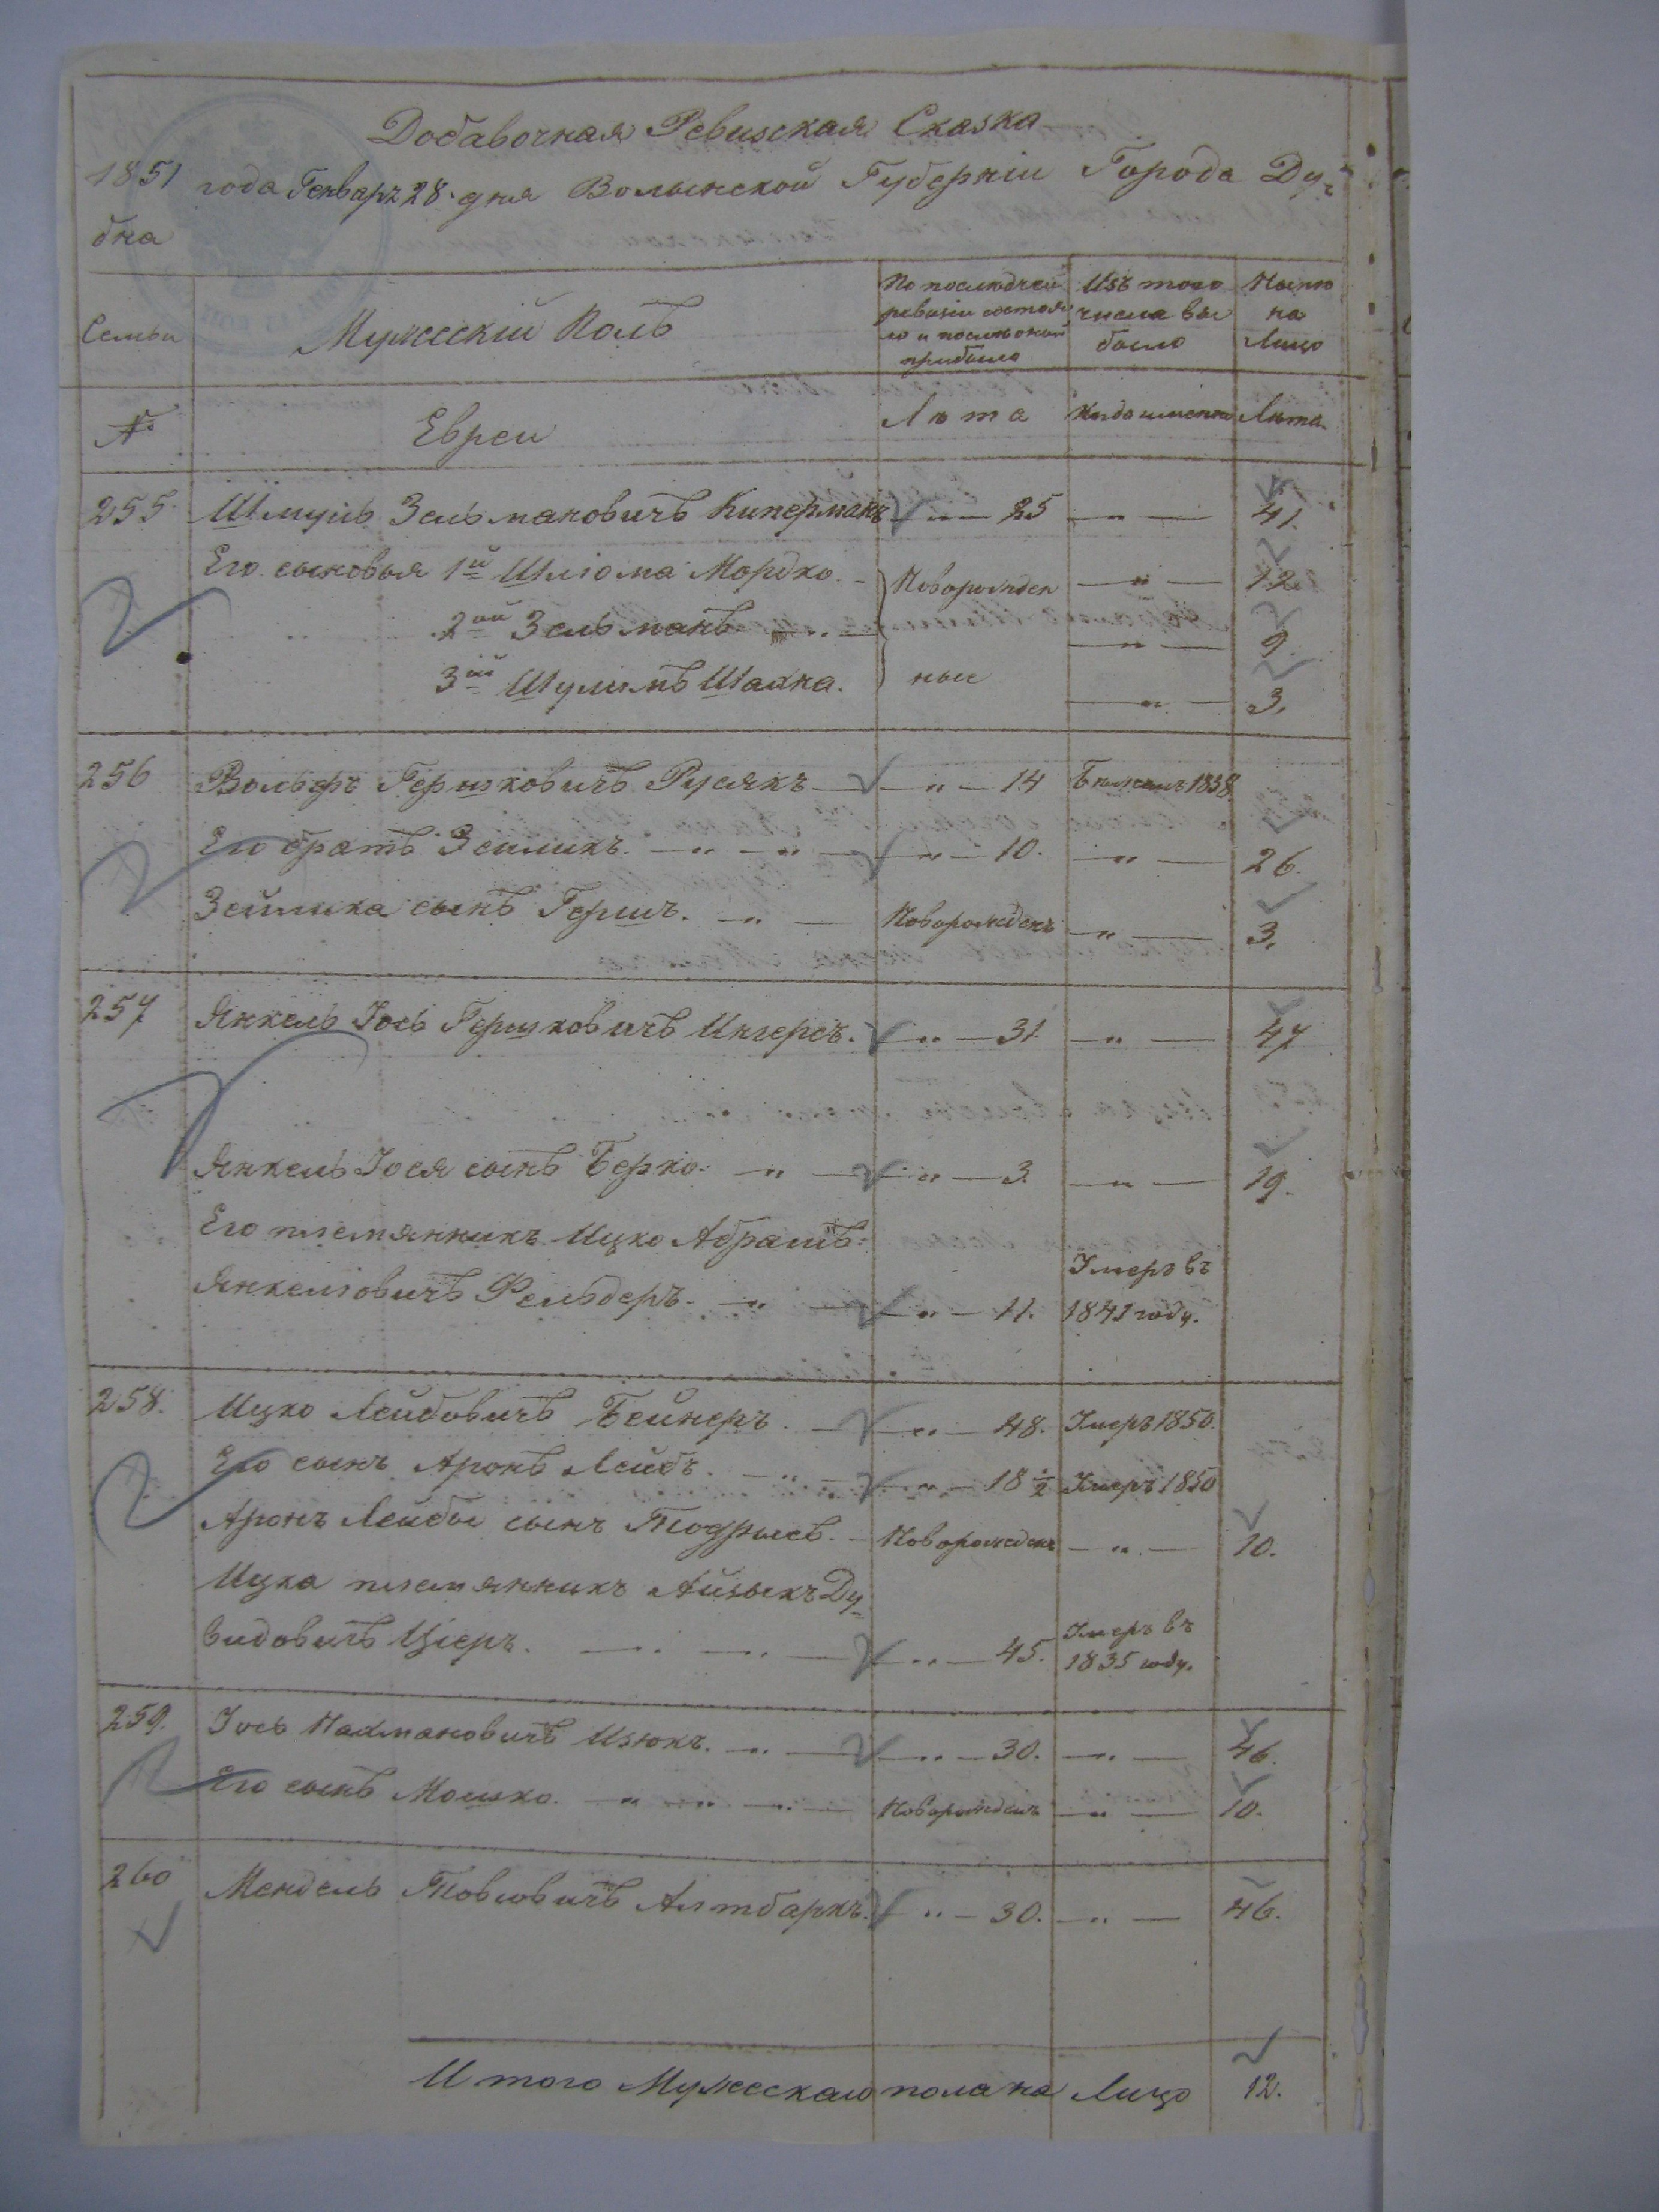 Добавочная Ревизская Сказка
1851 года Генваря 28 дня Волынской Губерніи Города Ду-
бна
Семьи
Мужескій Полъ
По последней
ревизіи состоя
ло и после оной
прибыло
Изъ того
числа вы
было
Ныне
на
Лицо
№
Евреи
Лѣта
Когда именно
Лѣта.
255 Шмуль Зельмановичъ Киперманъ — „ — 25 — „ — 41.
Его сыновья 1й Шлiома Мордко. Новорожден — „ — 12.
2ой Зельманъ — „ — 9.
3ій Шулимъ Шахна. ные — „ — 3.
256 Вольфъ Гершковичъ Русякъ — „ — 14 Бежалъ 1838.
Его братъ Зейликъ. — „ — „ — „ — 10. — „ — 26.
Зейлика сынъ Гершъ. — „ — Новорожденъ — „ — 3.
257 Янкель Іось Гершковичъ Ингеръ. — „ — 31. — „ — 47
Янкель Іося сынъ Берко. — „ — „ — 3. — „ — 19.
Его племянникъ Ицко Абрамъ
Янкелiовичъ Фельдеръ. — „ — „ — 11. Умеръ въ
1841 году.
258. Ицко Лейбовичъ Бейнеръ. — „ — 48. Умеръ 1850.
Его сынъ Аронъ Лейбъ. — „ — „ — 18 ½ Умеръ 1850
Аронъ Лейбы сынъ Тодрысь. — Новорожденъ — „ — 10.
Ицка племянникъ Айзыкъ Ду-
видовичъ Цiеръ. — „ — „ — „ — 45. Умеръ въ
1835 году.
259. Іось Нахмановичъ Изюкъ. — „ — „ — 30. — „ — 46.
Его сынъ Мошко. — „ — „ — „ — Новорожденъ — „ — 10.
260 Мендель Товiовичъ Алтбаркъ. — „ — 30. — „ — 46.
Итого Мужескаго пола на Лицо 12.